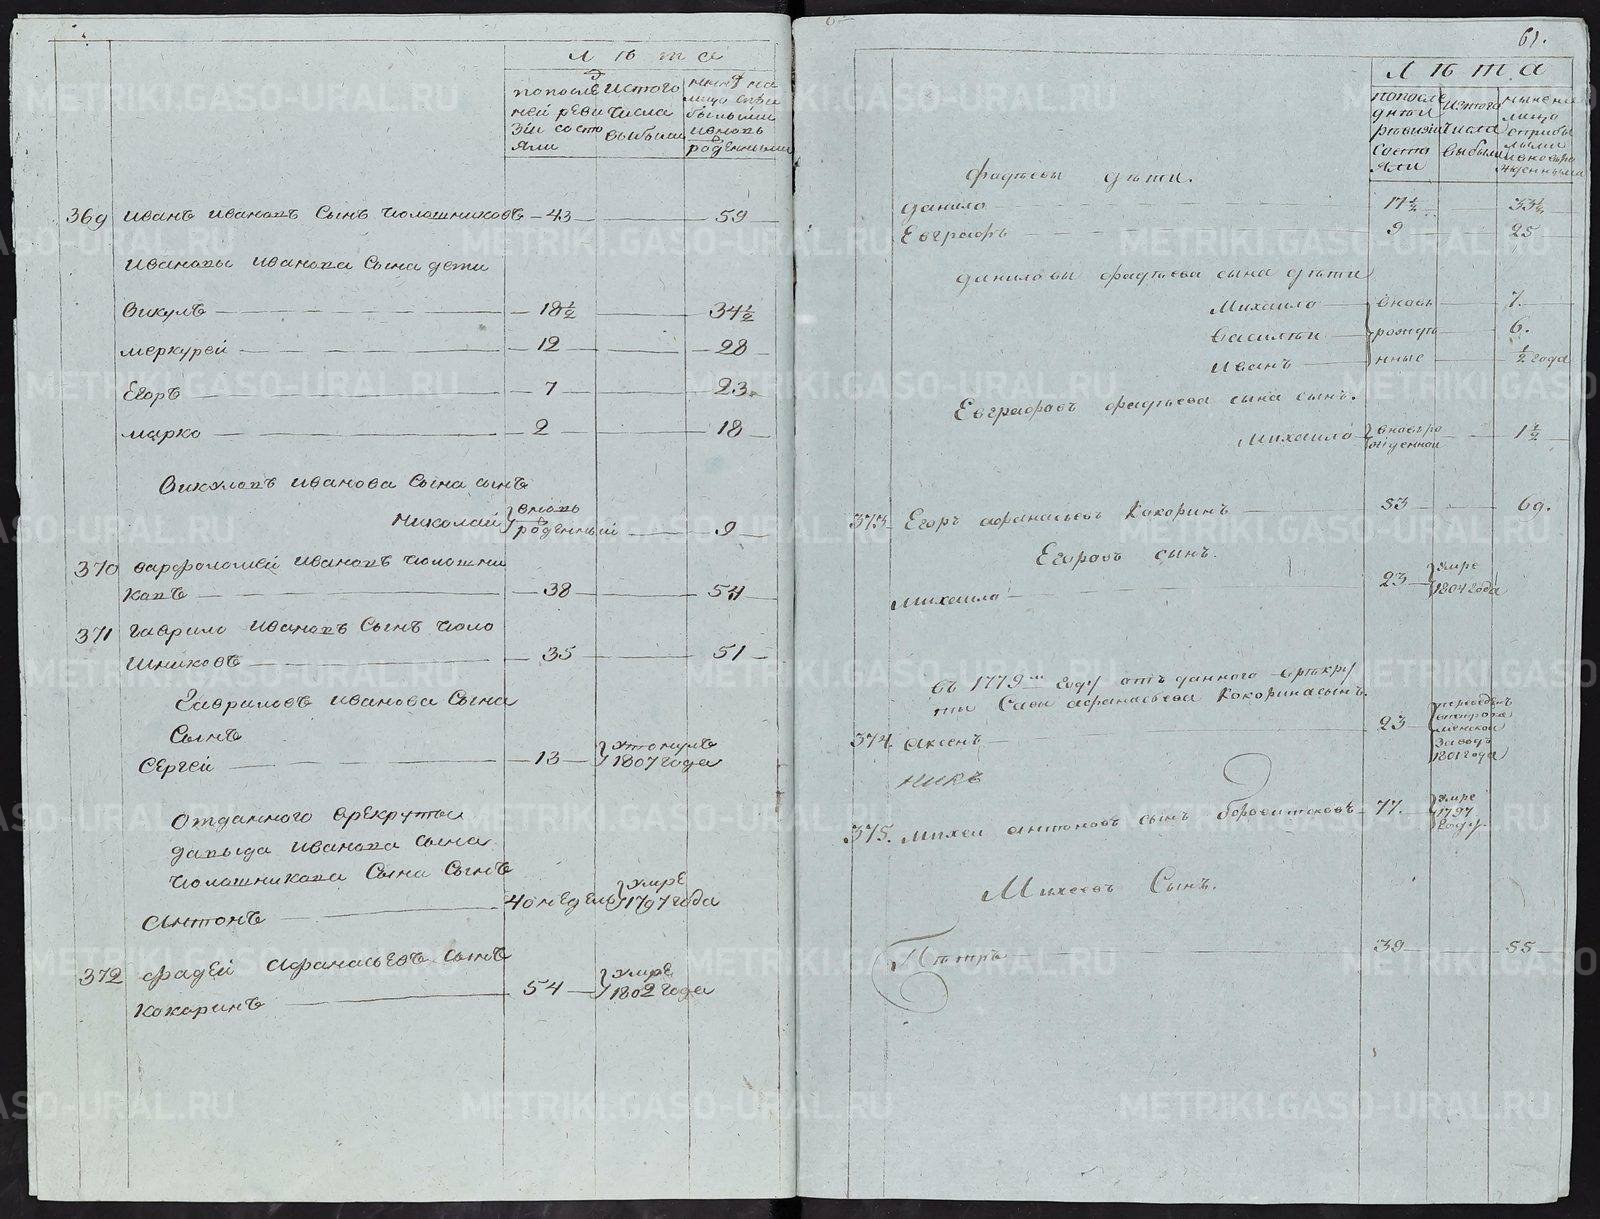 Лѣта
по после
ней реви
зіи состо
яли
Ис того
числа
выбыли
ныне на
лицо спри
былыми
иновь
рожденными
369 Иванъ Ивановъ Сынъ Чолошниковъ — 43 — 59
Ивановы Иванова Сына дети
Викулъ — 18 ½ — 34 ½
Меркурей — 12 — 28
Егоръ — 7 — 23
Марко — 2 — 18
Викуловъ Иванова Сына сынъ
Николай вновь
рожденный — 9
370 Варфоломей Ивановъ Чолошни
ковъ — 38 — 54
371 Гаврило Ивановъ Сынъ Чоло
шниковъ — 35 — 51
Гавриловъ Иванова Сына
Сынъ
Сергей — 13 — утонулъ
1807 года
Отданного врекруты
давыда Иванова сына
Чолошникова Сына Сынъ
Антонъ — 40 недель умре
1797 года
372 Фадей Афанасьевъ сынъ
Кокоринъ — 54 — умре
1802 года
61.
Лѣта
по после
дней
ревизіи
состо
яли
Изтого
числа
выбыли
ныне на
лицо
сприбы
лыми
и вновь ро
жденными
Фадѣевы дѣти.
Данило — 17 ½ — 33 ½
Евграфъ — 9 — 25
Даниловы Фадѣева сына дѣти
Михаило — вновь — 7.
Василей — рожде — 6.
Иванъ — нные — ½ года
Евграфовъ Фадѣева сына сынъ.
Михаило вновь ро
жденной — 1 ½
373 Егоръ Афанасьевъ Кокоринъ — 53 — 69.
Егоровъ сынъ.
Михаило — 23 — умре
1804 года
въ 1779м году отъ данного врѣкру
ты Савы Афанасьева Кокорина сынъ.
374. Аксенъ — 23 — переведенъ
заводъ
1801 года
никъ
375. Михей Антоновъ сынъ Боровитоковъ — 77. умре
1797
году
Михеевъ Сынъ.
Пѣтръ — 39 — 55
METRIKI.GASO-URAL.RU